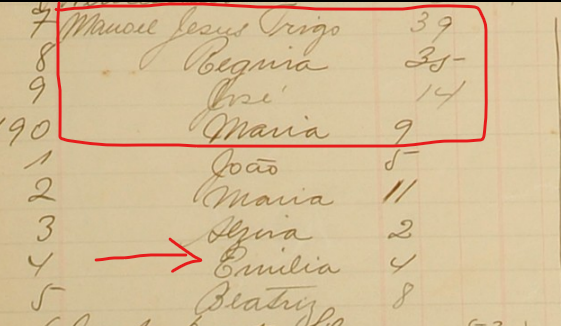 7 Manoel Jesus Trigo 39
8 Regina 35
9 José 14
190 Maria 9
1 João 5
2 Maria 11
3 2
4 Emilia 4
5 Beatriz 8